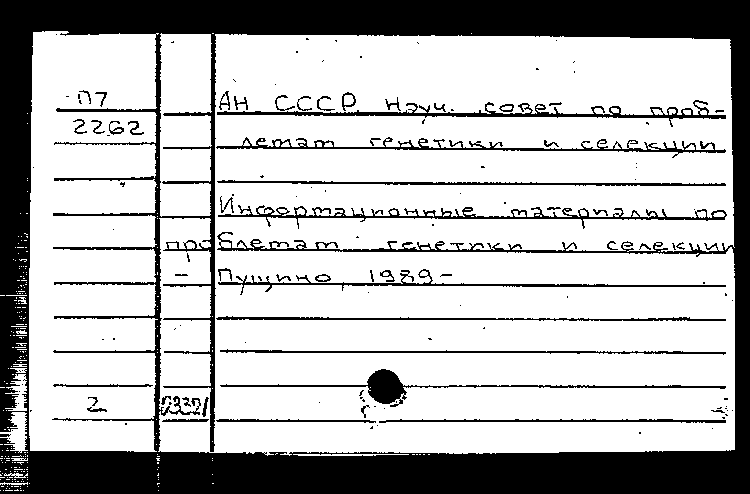 П7 АН СССР. Науч. совет по проб-
2262 лемам генетики и селекции
Информационные материалы по
проблемам генетики и селекции
- Пущино, 1989-
2 23321